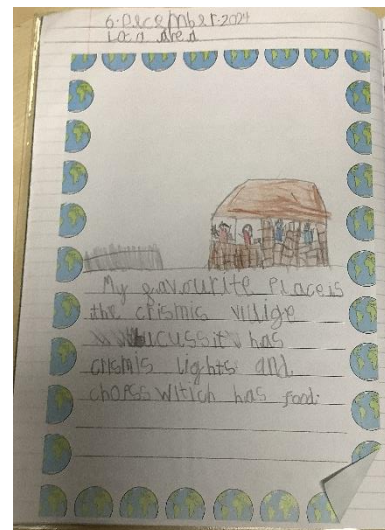 6.December.2024
Loca area
My favourite Place is
the crismis villige
bucuss it has
crismis lights and
chopss witich has food.